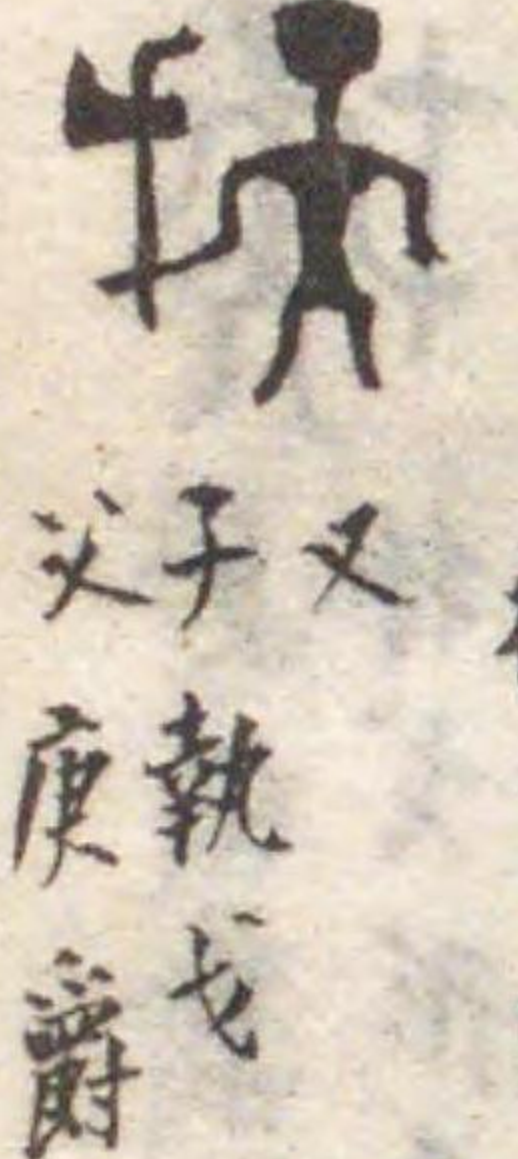 又
子執戈
父庚爵